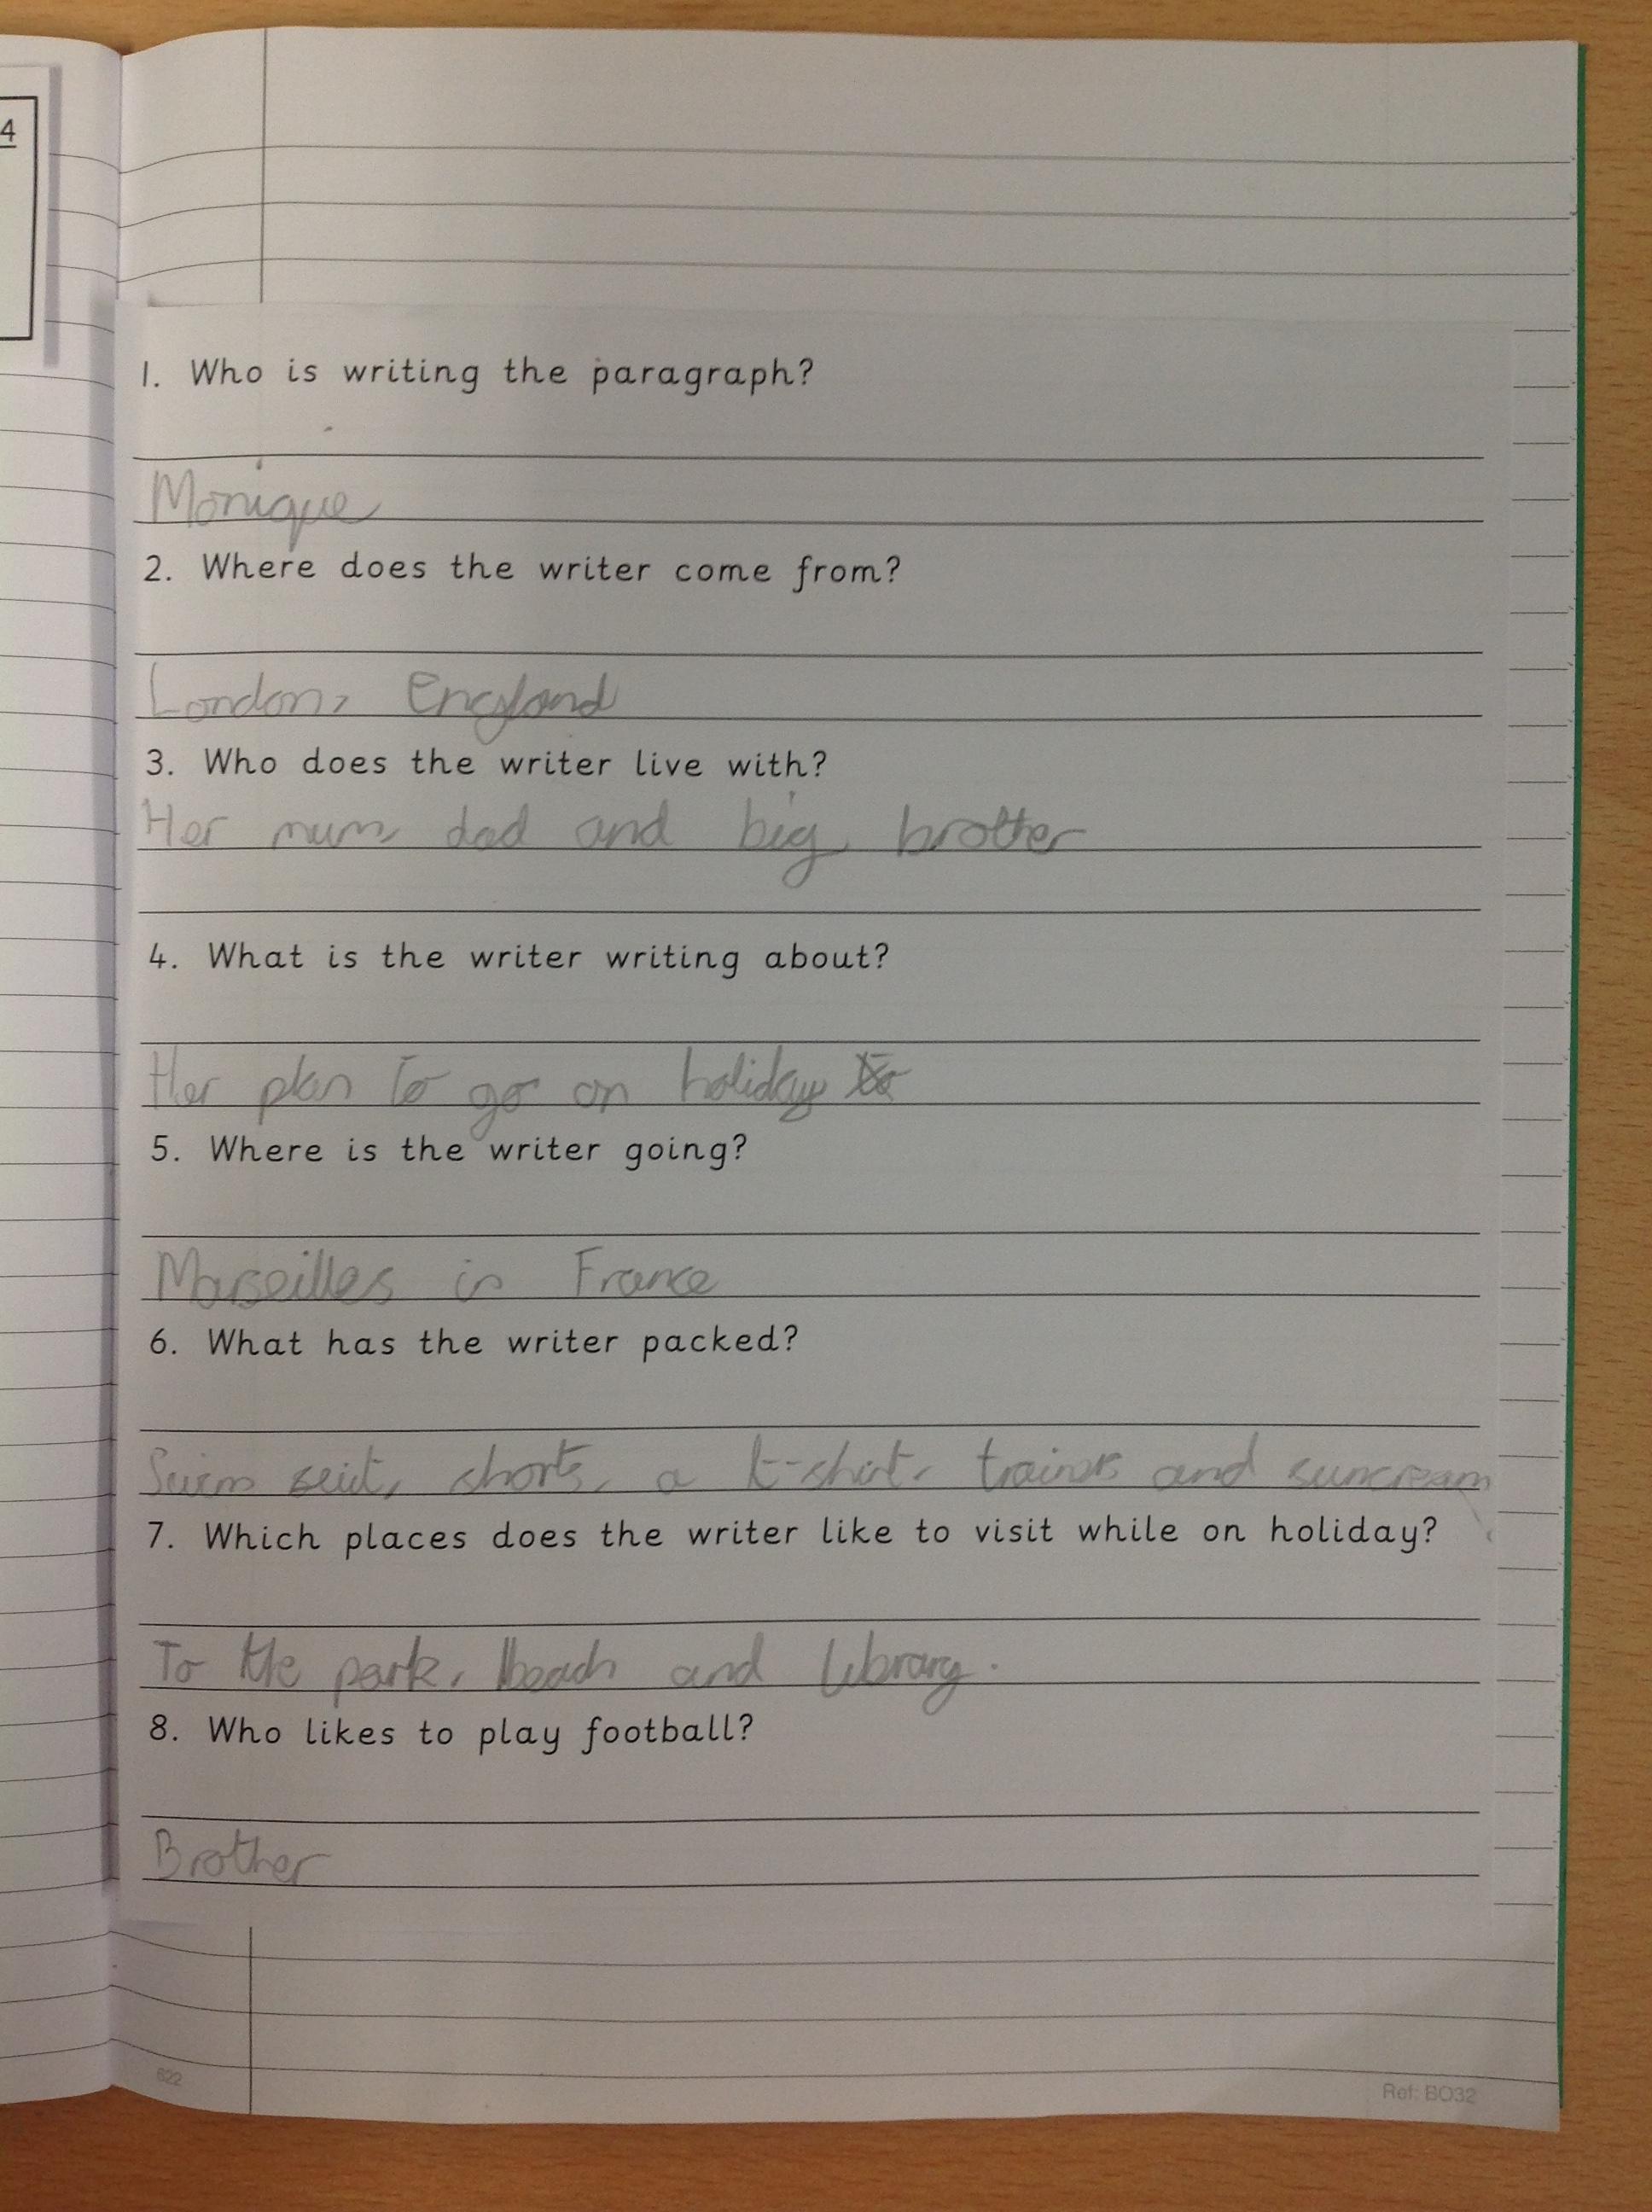 4
1. Who is writing the paragraph?
Monique
2. Where does the writer come from?
London, England
3. Who does the writer live with?
Her mum, dad and big brother
4. What is the writer writing about?
Her plan to go on holiday
5. Where is the writer going?
Marseilles in France
6. What has the writer packed?
Swim suit, shorts, a t-shirt, trainers and suncream
7. Which places does the writer like to visit while on holiday?
To the park, beach and library.
8. Who likes to play football?
Brother
622
Ref: BO32